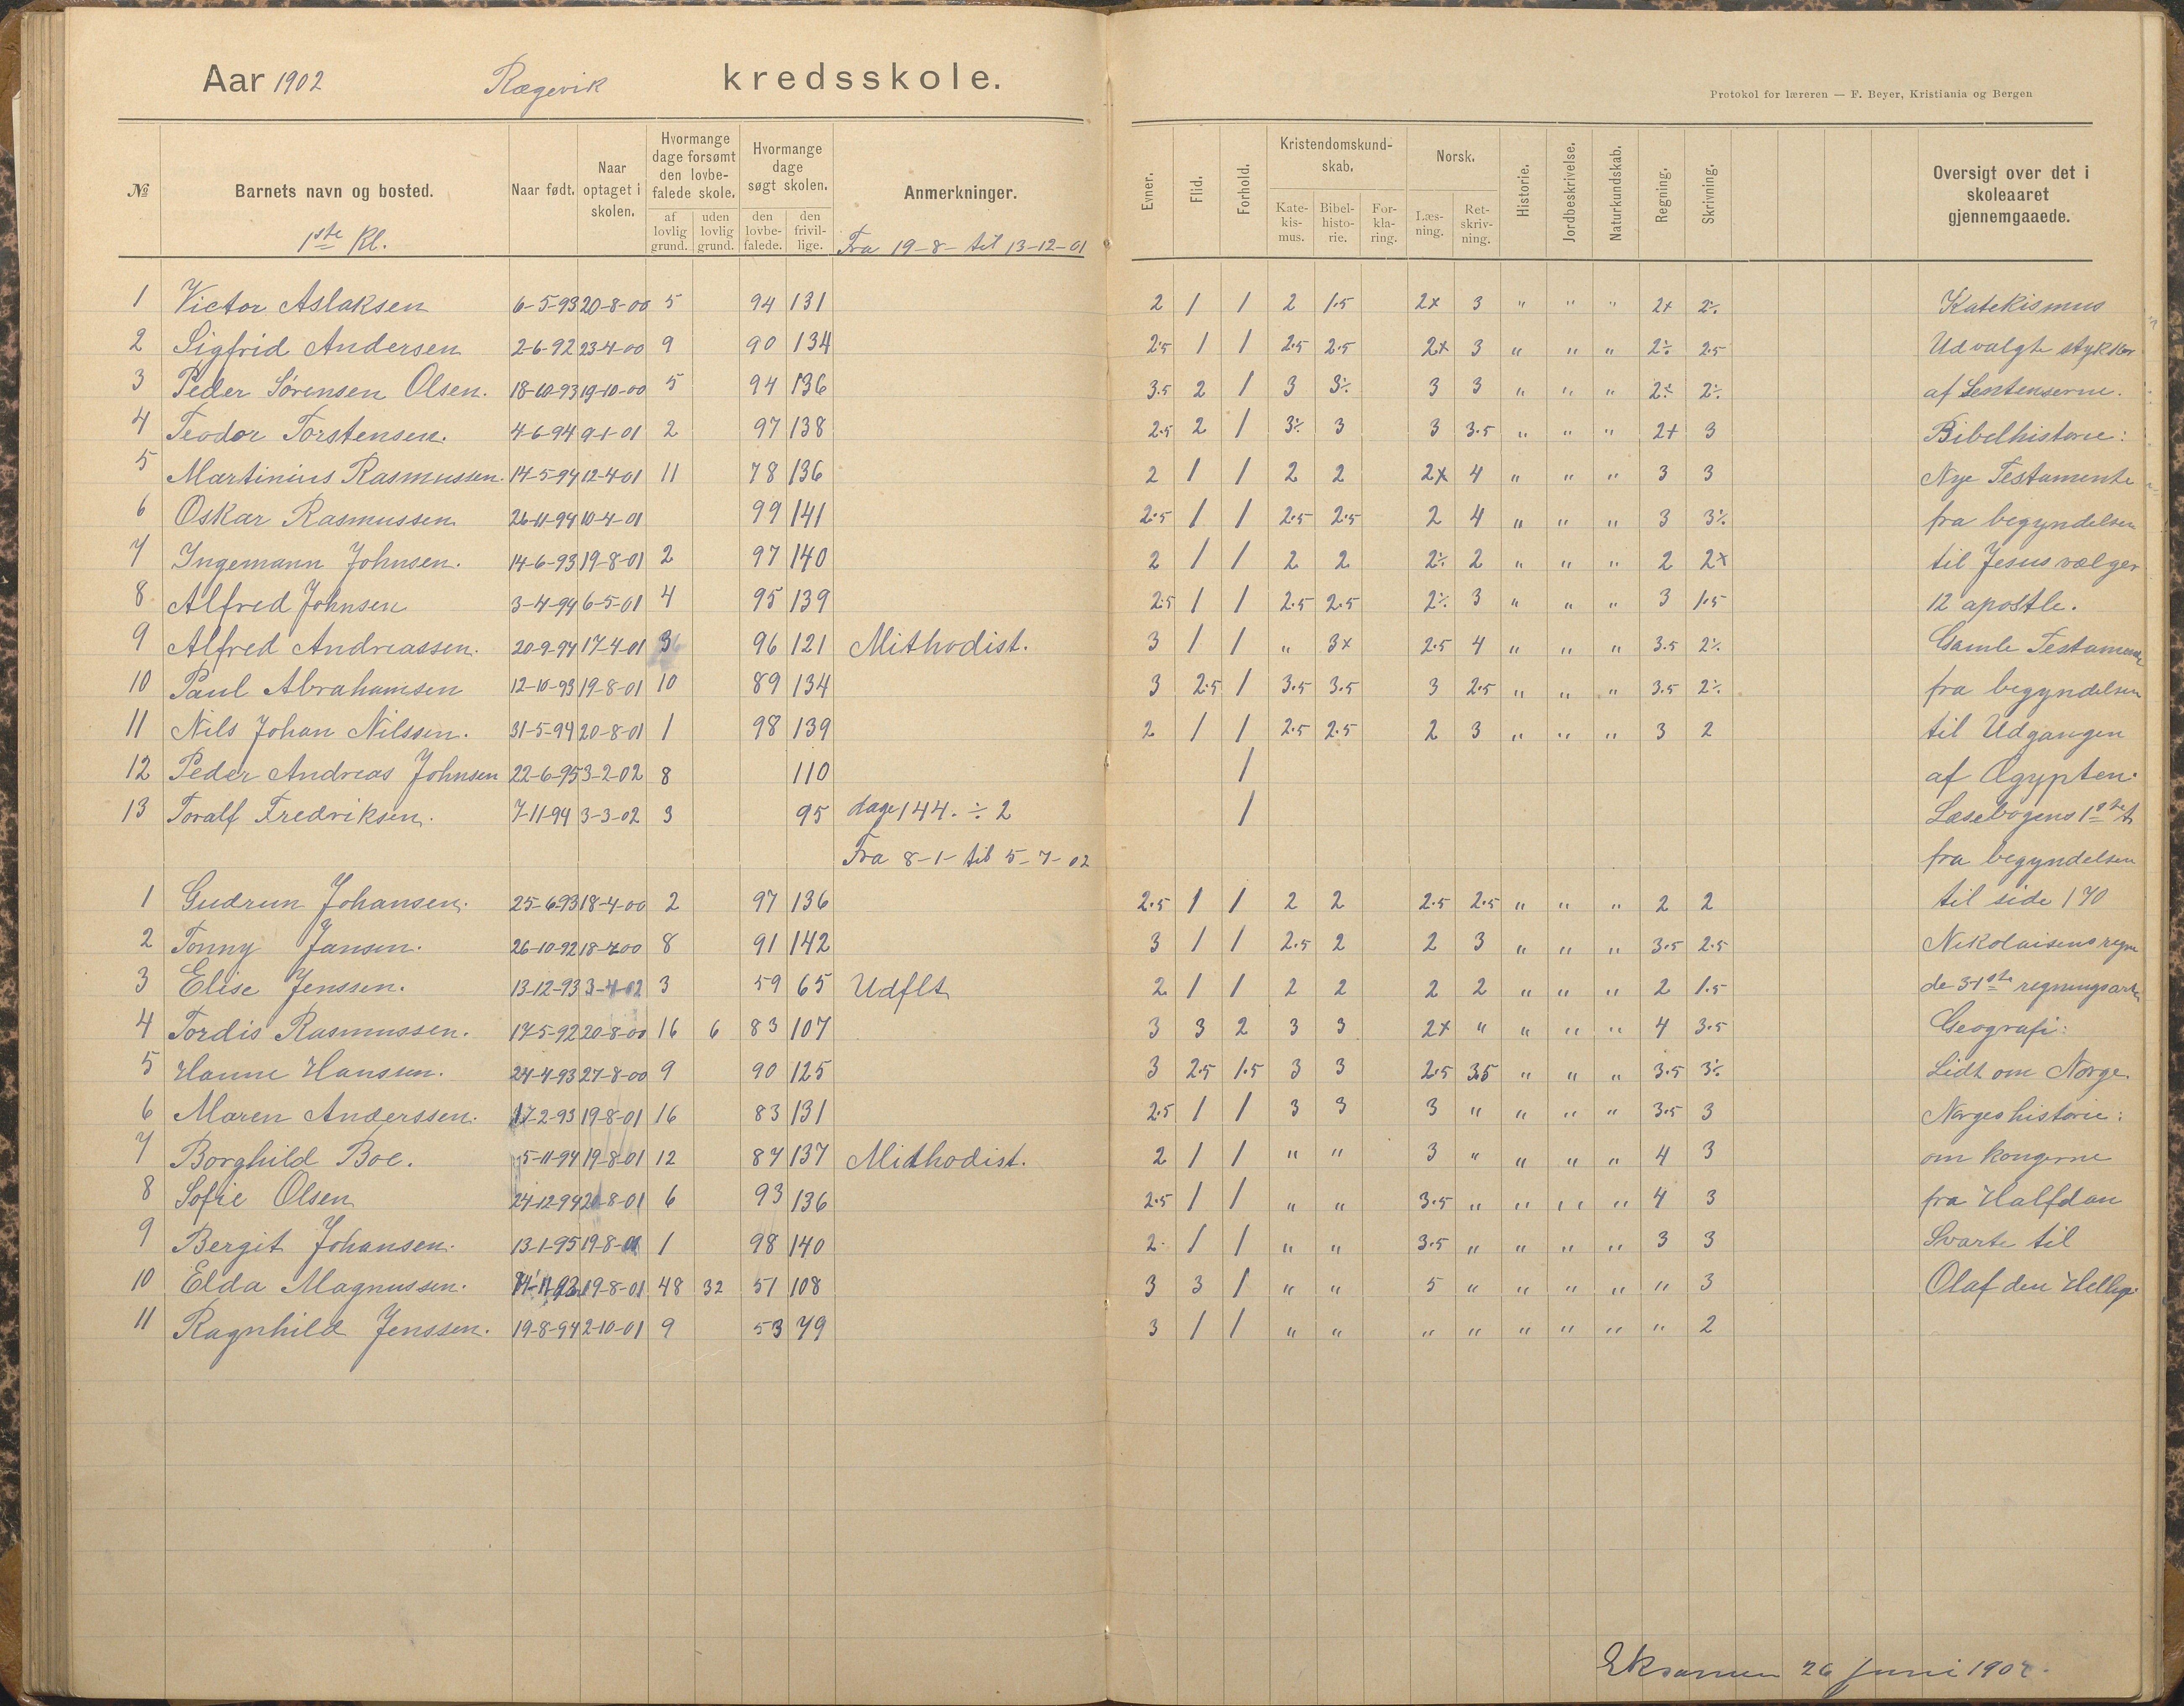 Aar 1902 Rægevik kredsskole.
Protokol for læreren — F. Beyer, Kristiania og Bergen
№ Barnets navn og bosted. Naar født. Naar optaget i skolen. Hvormange dage forsømt den lovbefalede skole. af lovlig grund. uden lovlig grund. Hvormange dage søgt skolen. den lovbefalede. den frivillige. Anmerkninger. Evner. Flid. Forhold. Kristendomskundskab. Katekismus. Bibelhistorie. Forklaring. Norsk. Læsning. Retskrivning. Historie. Jordbeskrivelse. Naturkundskab. Regning. Skrivning. Oversigt over det i skoleaaret gjennemgaaede.
1ste Kl. Fra 19-8- til 13-12-01
1 Victor Aslaksen 6-5-93 20-8-00 5 94 131 2 1 1 2 1.5 2x 3 " " " 2+ 2÷ Katekismus
2 Sigfrid Andersen 2-6-92 23-4-00 9 90 134 2.5 1 1 2.5 2.5 2x 3 " " " 2÷ 2.5 Udvalgte stykker
3 Peder Sørensen Olsen. 18-10-93 19-10-00 5 94 136 3.5 2 1 3 3÷ 3 3 " " " 2÷ 2÷ af Sentenserne.
4 Teodor Torstensen. 4-6-94 9-1-01 2 97 138 2.5 2 1 3÷ 3 3 3.5 " " " 2+ 3 Bibelhistorie:
5 Martinius Rasmussen. 14-5-94 12-4-01 11 78 136 2 1 1 2 2 2x 4 " " " 3 3 Nye Testamente
6 Oskar Rasmussen 26-11-94 10-4-01 99 141 2.5 1 1 2.5 2.5 2 4 " " " 3 3÷ fra begyndelsen
7 Ingemann Johnsen. 14-6-93 19-8-01 2 97 140 2 1 1 2 2 2÷ 2 " " " 2 2x til Jesus vælger
8 Alfred Johnsen 3-4-94 6-5-01 4 95 139 2.5 1 1 2.5 2.5 2÷ 3 " " " 3 1.5 12 apostle.
9 Alfred Andreassen. 20-9-94 17-4-01 3 96 121 Mithodist. 3 1 1 " 3x 2.5 4 " " " 3.5 2÷ Gamle Testamente
10 Paul Abrahamsen 12-10-93 19-8-01 10 89 134 3 2.5 1 3.5 3.5 3 2.5 " " " 3.5 2÷ fra begyndelsen
11 Nils Johan Nilssen. 31-5-94 20-8-01 1 98 139 2 1 1 2.5 2.5 2 3 " " " 3 2 til Udgangen
12 Peder Andreas Johnsen 22-6-95 3-2-02 8 110 1 af Ægypten.
13 Toralf Fredriksen. 7-11-94 3-3-02 3 95 dage 144. ÷ 2 1 Læsebogens 1ste
Fra 8-1- til 5-7-02 fra begyndelsen
1 Gudrun Johansen. 25-6-93 18-4-00 2 97 136 2.5 1 1 2 2 2.5 2.5 " " " 2 2 til side 170
2 Tonny Jansen. 26-10-92 18-4-00 8 91 142 3 1 1 2.5 2 2 3 " " " 3.5 2.5 Nikolaisens regn
3 Elise Jenssen. 13-12-93 3-4-02 3 59 65 Udflt 2 1 1 2 2 2 2 " " " 2 1.5 de 3 1ste regningsarter
4 Tordis Rasmussen. 17-5-92 20-8-00 16 6 83 107 3 3 2 3 3 2x " " " " 4 3.5 Geografi:
5 Hanne Hansen. 24-4-93 27-8-00 9 90 125 3 2.5 1.5 3 3 2.5 3.5 " " " 3.5 3÷ Lidt om Norge.
6 Maren Anderssen. 17-2-93 19-8-01 16 83 131 2.5 1 1 3 3 3 " " " " 3.5 3 Norges historie:
7 Borghild Boe. 5-11-94 19-8-01 12 87 137 Mithodist. 2 1 1 " " 3 " " " " 4 3 om kongerne
8 Sofie Olsen 24-12-94 20-8-01 6 93 136 2.5 1 1 " " 3.5 " " " " 4 3 fra Halfdan
9 Bergit Johansen. 13-1-95 19-8-01 1 98 140 2 1 1 " " 3.5 " " " " 3 3 Svarte til
10 Elda Magnussen. 19-8-01 48 32 51 108 3 3 1 " " 5 " " " " " 3 Olaf den Hellige
11 Ragnhild Jenssen. 19-8-94 2-10-01 9 53 79 3 1 1 " " " " " " " " 2
Eksamen 26 Juni 1902.